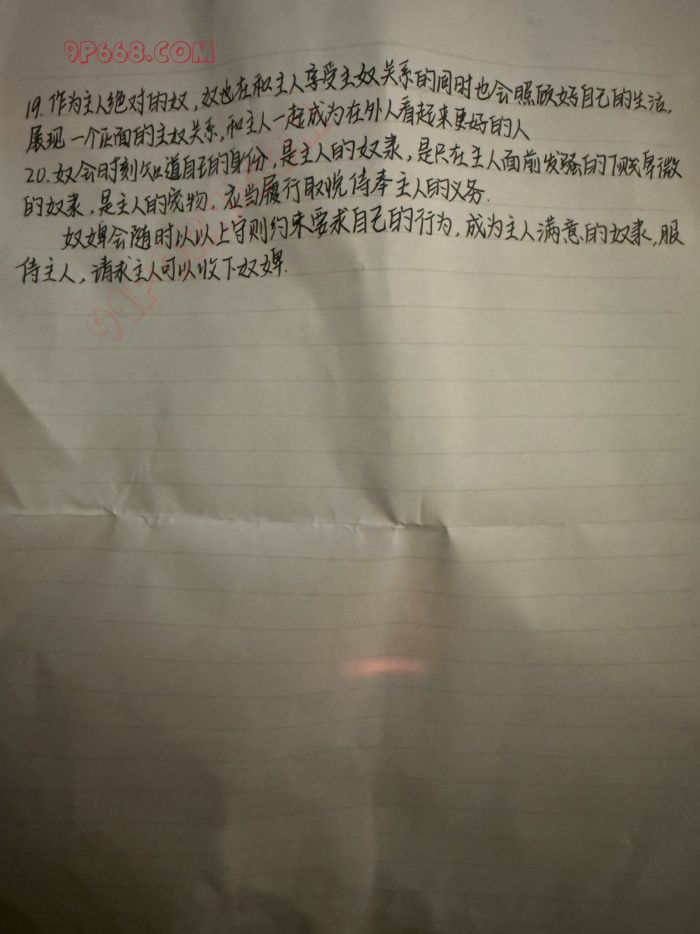 9P668.COM
19. 作为主人绝对的奴, 奴也在和主人享受主奴关系的同时也会照顾好自己的生活,
展现一个正面的主奴关系, 和主人一起成为在外人看起来更好的人
20. 奴会时刻知道自己的身份, 是主人的奴隶, 是只在主人面前发骚的下贱卑微
的奴隶, 是主人的宠物, 应当履行取悦侍奉主人的义务.
奴婢会随时以以上守则约束要求自己的行为, 成为主人满意的奴隶, 服
侍主人, 请求主人可以收下奴婢.